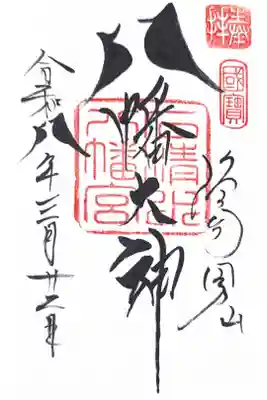 奉拝
國寶
男山
八幡大神
石清水八幡宮
令和八年三月廿二日